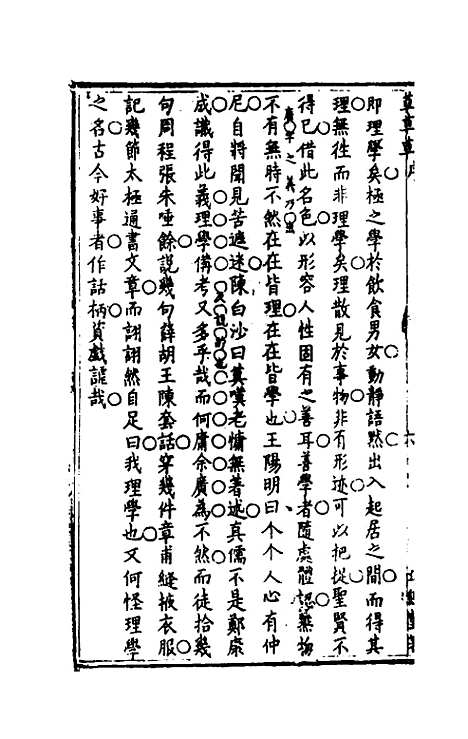 即理學矣極之學於飲食男女動靜語默出入起居之間而得其
理無徃而非理學矣理散見於事物非有形迹可以把捉聖賢不
得已借此名色以形容人性固有之善耳善學者隨處體認無物
不有無時不然在在皆理在在皆學也王陽明曰个个人心有仲
尼自將聞見苦遮迷陳白沙曰莫嘆老慵無著述真儒不是鄭康
成識得此義理學備考又多乎哉而何庸余廣為不然而徒拾幾
句周程張朱唾餘說幾句薛胡王陳套話穿幾件章甫縫掖衣服
記幾節太極通書文章而詡詡然自足曰我理學也又何怪理學
之名古今好事者作話柄資戲謔哉